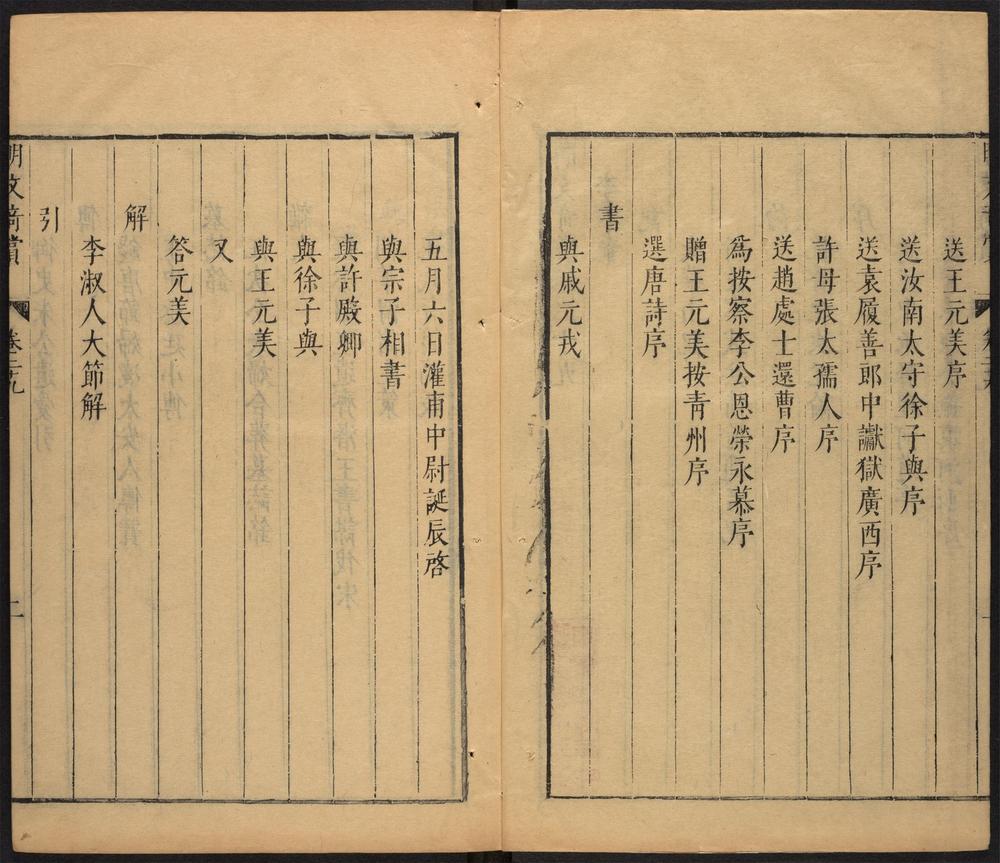 送王元美序
送汝南太守徐子與序
送袁履善郎中讞獄廣西序
許母張太孺人序
送趙處士還曹序
爲按察李公恩榮永慕序
贈王元美按靑州序
選唐詩序
書
與戚元戎
五月六日灌甫中尉誕辰啓
與宗子相書
與許殿卿
與徐子與
與王元美
又
答元美
解
李淑人大節解
引
明文奇賞 卷三九 二